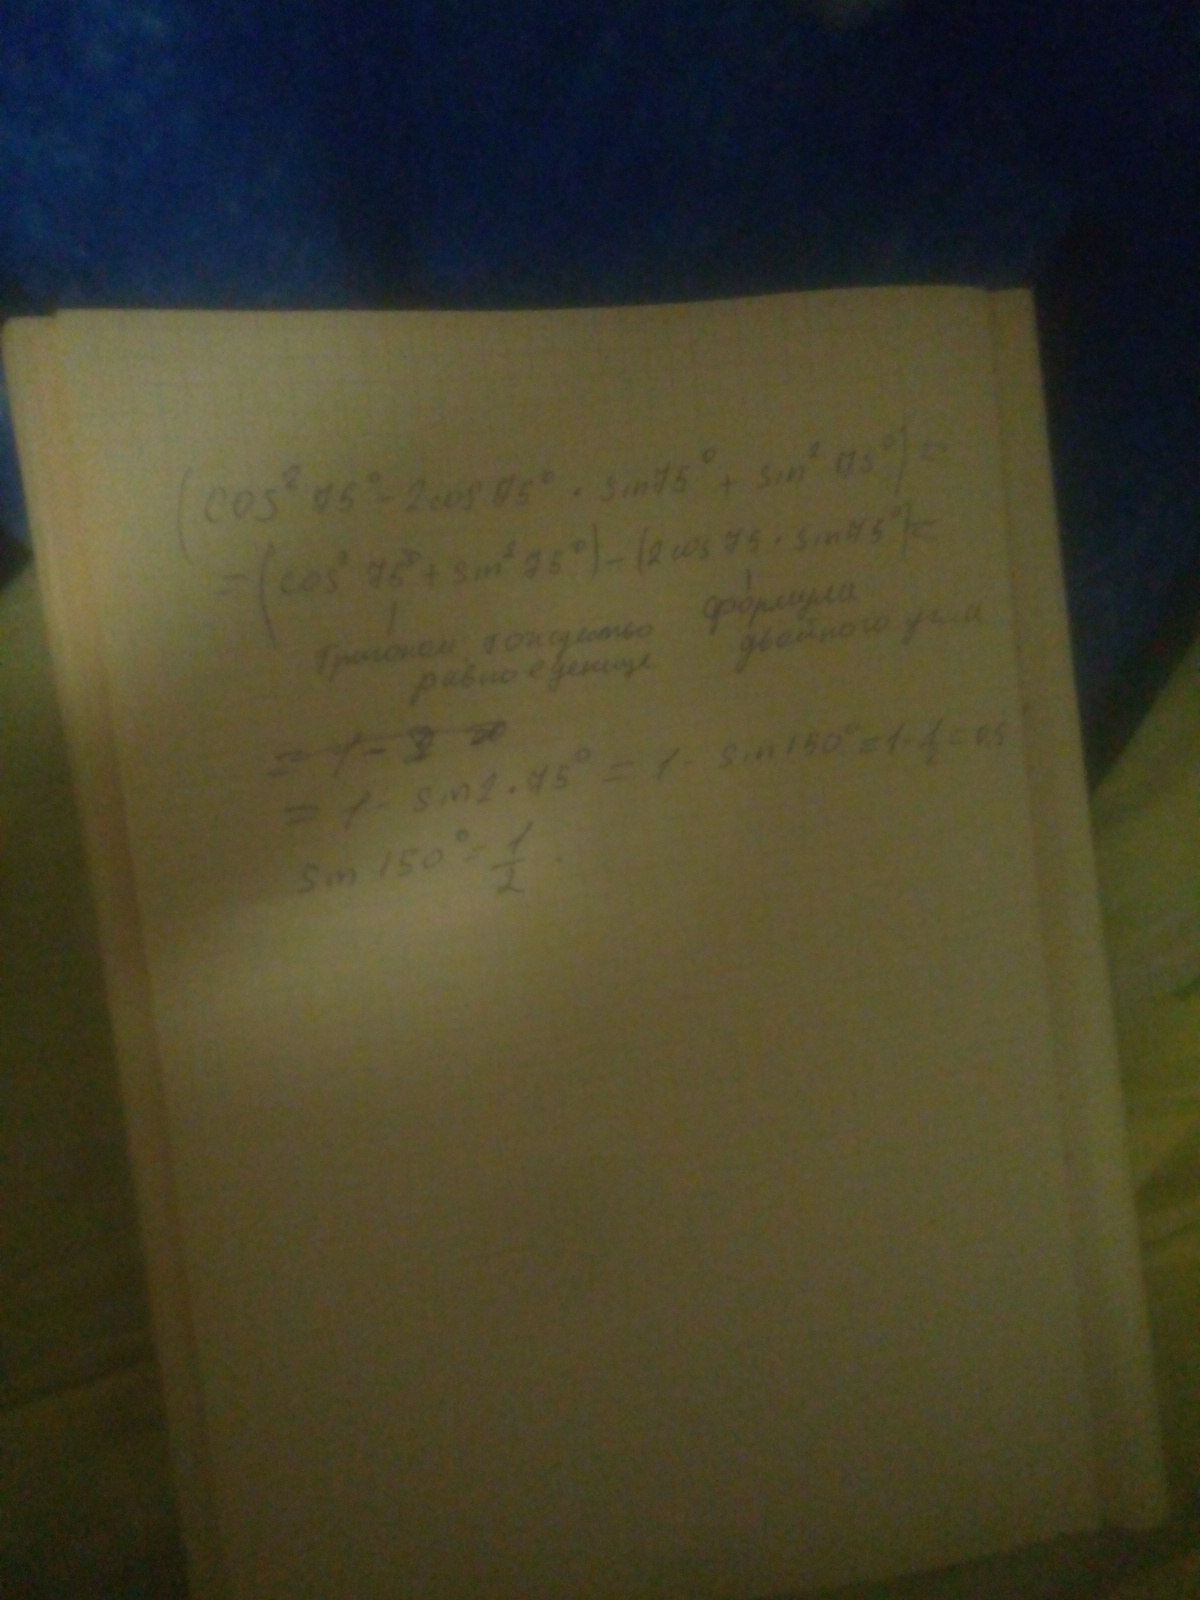 (cos² 75° - 2cos 75° · sin75° + sin² 75°) =
= (cos² 75° + sin² 75°) - (2cos 75 · sin75°) =
Тригоном. тождество формула
равно единице двойного угла
= 1 -
= 1 - sin2·75° = 1 - sin150° = 1 - 1/2 = 0,5
sin 150° = 1/2.